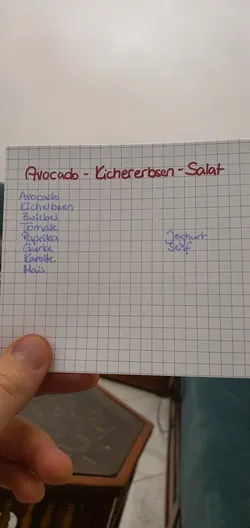 Avocado - Kichererbsen - Salat
Avocado
Kichelbsen
Zwiebel
Tomate
Paprika
Gurke
Karotte
Mais
Joghurt
Senf